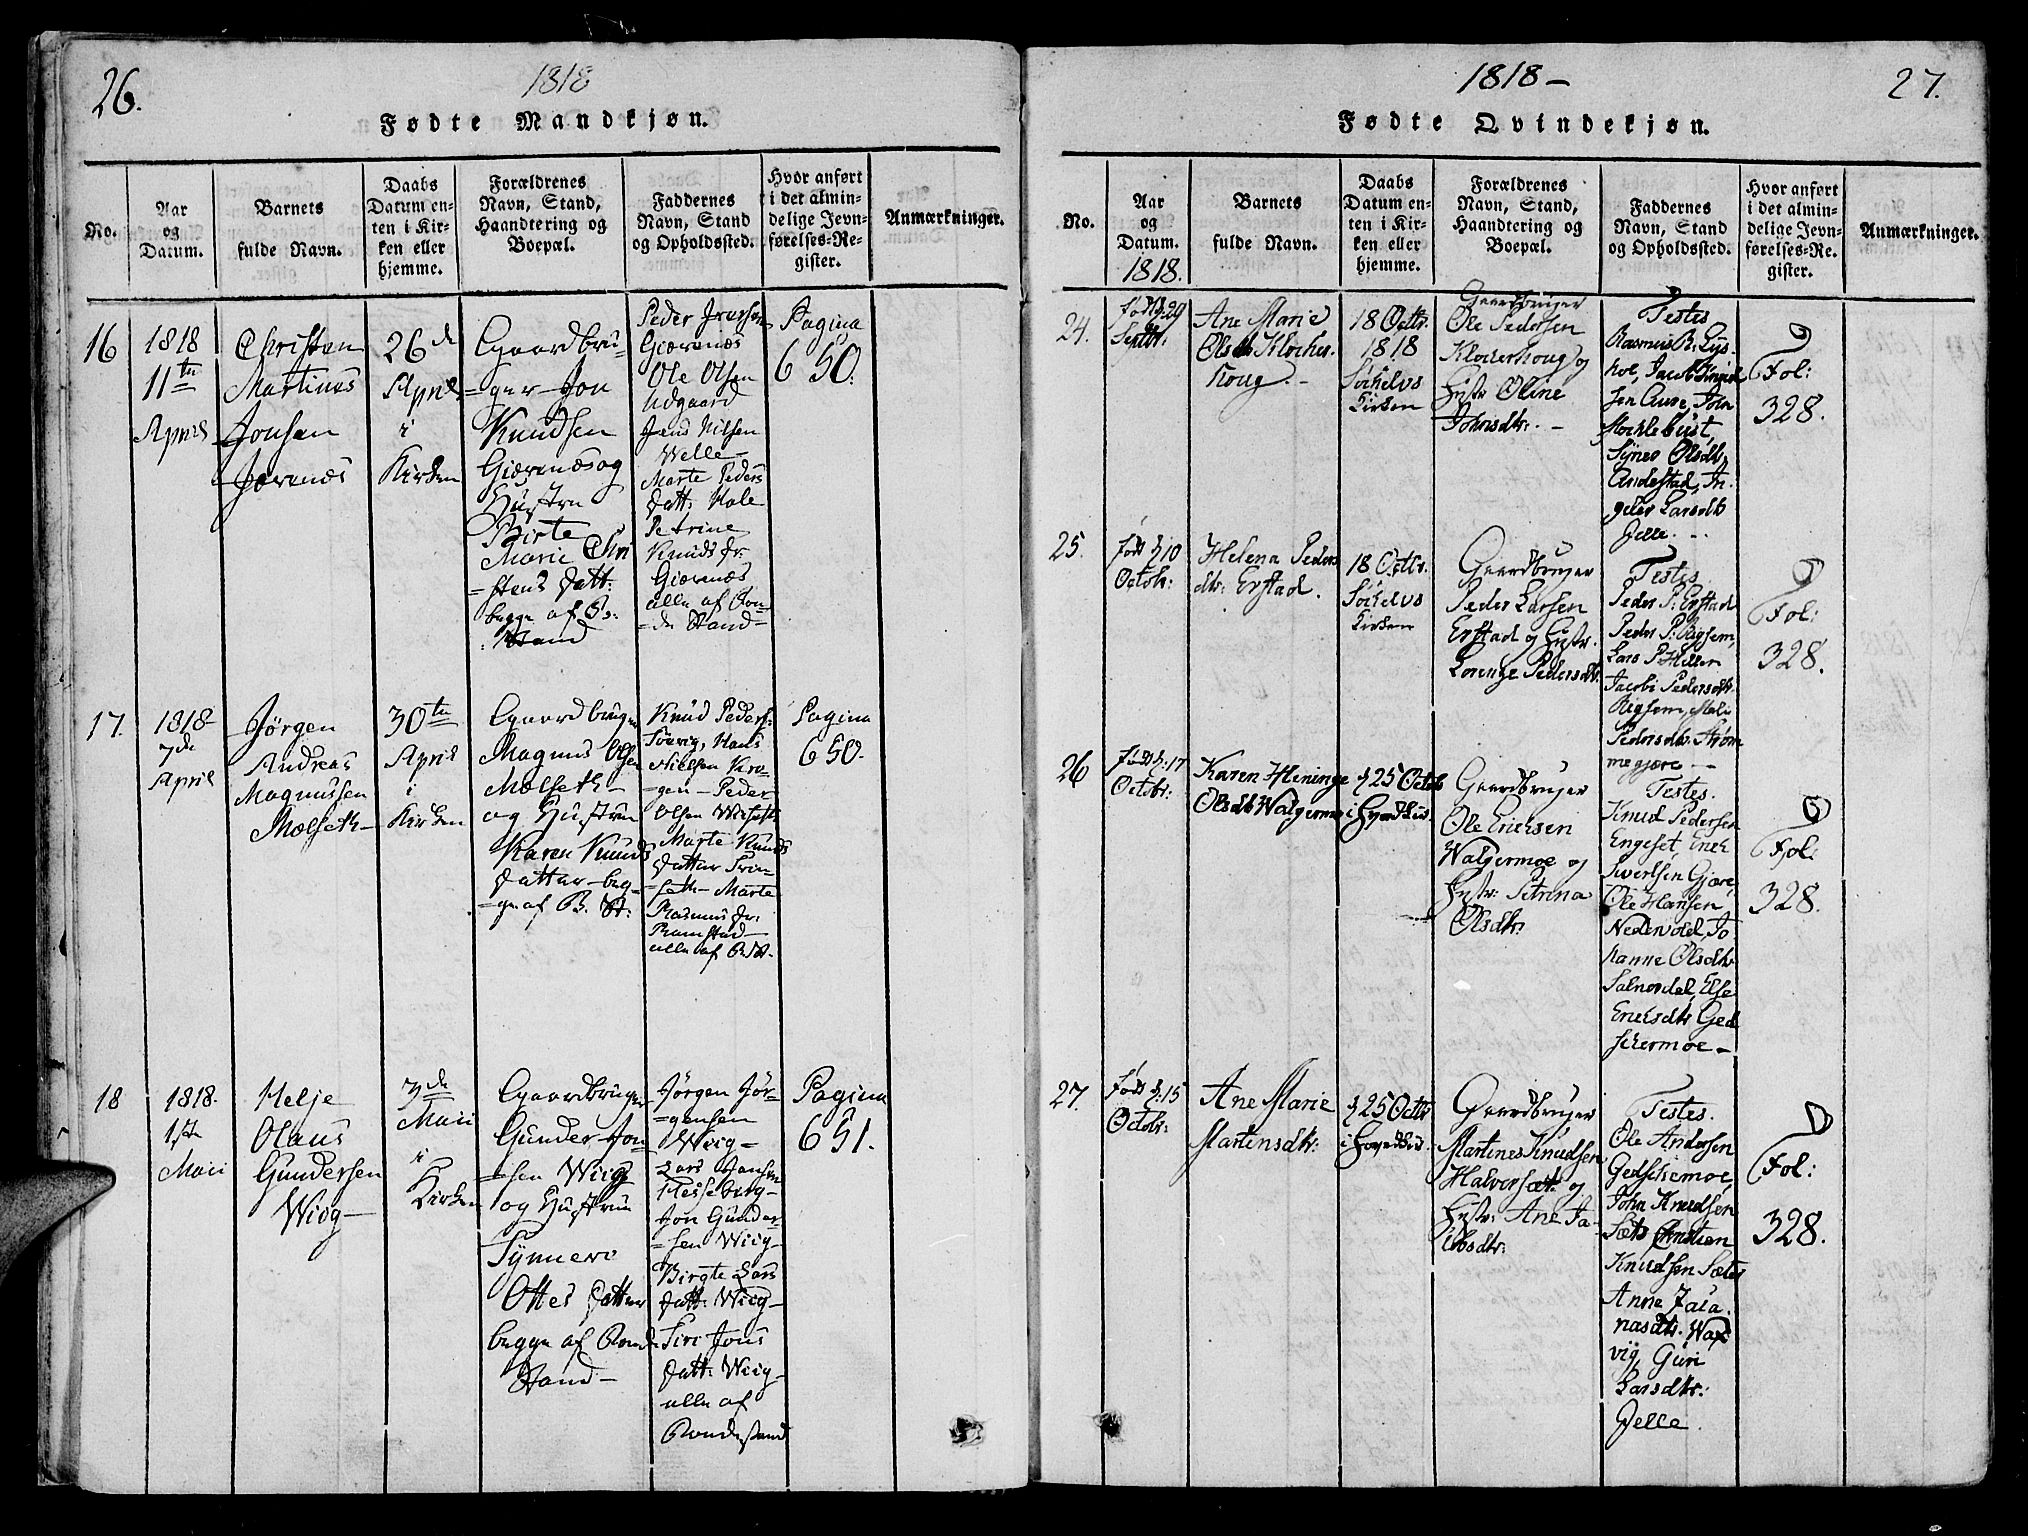 26.
1818
Fødte Mandkjøn.
No.
Aar
og
Datum.
Barnets
fulde Navn.
Daabs
Datum en-
ten i Kir-
ken eller
hjemme.
Forældrenes
Navn, Stand,
Haandtering og
Boepæl.
Faddernes
Navn, Stand
og Opholdssted.
Hvor anført
i det almin-
delige Jevn-
førelses-Re-
gister.
Anmærkninger.
16
1818
11te
April
Christen
Martinus
Jonsen
Jærenæs
26de
April
i
Kirken
Gaardbru-
=ger Jon
Knudsen
Giærenæs og
Hustru
Birte
Marie Chri
=stens Datt:
begge af B:
Stand
Peder
Giærenæs
Ole Olsen
Udgaard
Jens Nilsen
Welle
Marte Peders
Datt: Hole
Petrine
Knuds Dr.
Giærenæs
alle af Bon-
=de Stand=
Pagina
650.
17.
1818
7de
April
Jørgen
Andreas
Magnussen
Mælseth
30te
April
i
Kirken
Gaardbruger
Magnus Olsen
Mælseth
og Hustrue
Karen Knuds
Datter beg-
=ge af B. St:
Knud Peders:
Søevig, Hans
Nielsen Kro-
gen Peder
Olsen Wiseth
Marte Knuds
Datter
=seth Marte
Rasmus Dr.
Ramstad
alle af B. St.
Pagina
650.
18
1818.
1ste
Maii
Helje
Olaus
Gundersen
Wiig
3de
Maii
i
Kirken
Gaardbruger
Gunder Jon
=sen Wiig
og Hustrue
Synneve
Ottes Datter
begge af Bonde
Stand
Jørgen Jør
=gensen
Wiig
Lars Jensen
Hesseberg
Jon Gunder
=sen Wiig
Birgte Lars
Datt: Wiig
Siri Jons
Datt: Wiig
alle af
Bondestand
Pagina
651.
1818
27.
Fødte Qvindekjøn.
No.
Aar
og
Datum.
1818.
Barnets
fulde Navn.
Daabs
Datum en-
ten i Kir-
ken eller
hjemme.
Forældrenes
Navn, Stand,
Haandtering og
Boepæl.
Faddernes
Navn, Stand
og Opholdssted.
Hvor anført
i det almin-
delige Jevn-
førelses-Re-
gister.
Anmærkninger.
24.
Født d: 29
Septbr.
Ane Marie
Olsdtr Klocker-
houg.
18 Octbr.
1818
Søchelvs
Kirken
Gaardbruger
Ole Pedersen
Klockerhoug og
Hustr Oline
Johnsdtr.
Testes
Rasmus R: Lys-
hol, Jacob
sen Aure, John
Mochlebust,
Synes Olsdtr
Andestad, In-
geber Larsdtr
Jelle.
Fol:
328.
25.
Født d: 10
Octob:
Helena Peders
dtr: Erstad.
18 Octbr.
Søchelvs
Kirken
Gaardbruger
Peder Larsen
Erstad og Hustr.
Lorenze Pedersdtr:
Testes
Peder P: Erstad
Peder P: Rigsem,
Lars P Hellen
Jacobi Pedersdtr.
Rigsem, Mali
Pedersdtr. Strøm
megjære
Fol:
328.
26
Født d: 17
Octobr:
Karen Heninge
Olsdtr Walgermoe
d 25 Octob
i
Gaardbruger
Ole Ericksen
Walgermoe og
Hustr: Petrina
Olsdtr:
Testes.
Knud Pedersen
Engeset, Erick
Sivertsen Gjære,
Ole Hansen
Nedrevold, Jo
hanne Olsdtr
Salnesdal, Else
Ericksdtr Ged
schermoe
Fol:
328.
27.
Født d: 15
Octob:
Ane Marie
Martensdtr:
d 25 Octb
i
Gaardbruger
Martines Knudsen
Halvorsæt og
Hustr: Ane Ja-
cobsdtr:
Testes.
Ole Andersen
Gedschemoe,
John Knudsen
Sætr Christian
Knudsen Sæter
Anne Jaca-
nasdtr. Wax
vig, Guri
Larsdtr:
Jelle.
Fol:
328.